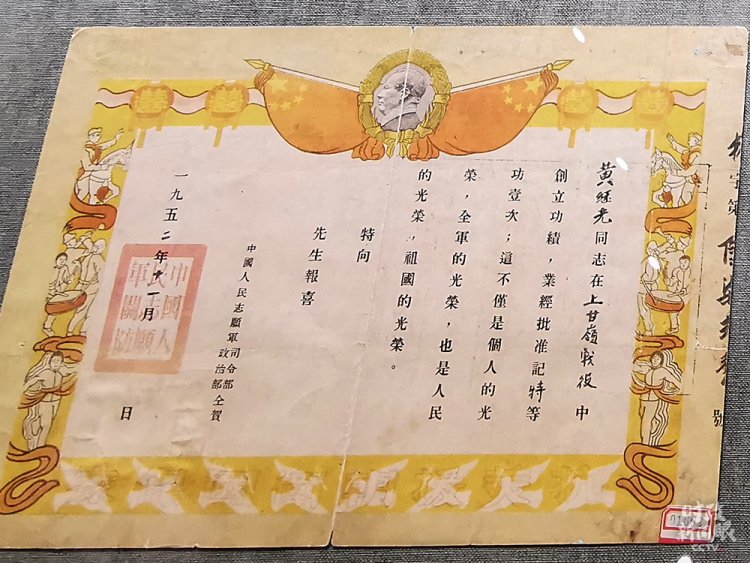 字第
號
黃继光同志在上甘嶺戰役中
創立功績，業經批准記特等
功壹次；這不僅是個人的光
榮，全軍的光榮，也是人民
的光榮，祖國的光榮。
特向
先生報喜
中國人民志願軍司令部
政治部仝賀
一九五二年十一月 日
中國人
民志願
軍關防
CCTV